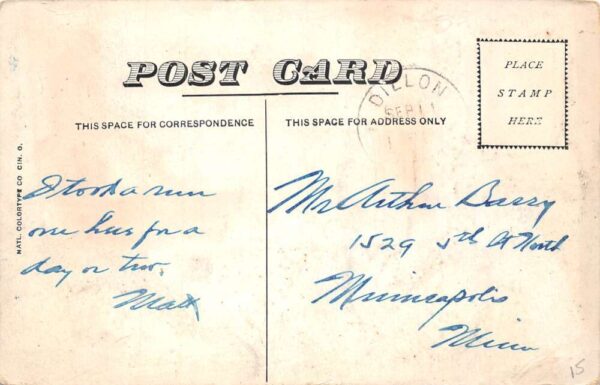 POST CARD
THIS SPACE FOR CORRESPONDENCE
THIS SPACE FOR ADDRESS ONLY
PLACE
STAMP
HERE
DILLON
SEP 11
NATL. COLORTYPE CO CIN. O.
I took a run
one here for a
day or two.
Matt
Mr Arthur Bassy
1529 5th St North
Minneapolis
Minn
15